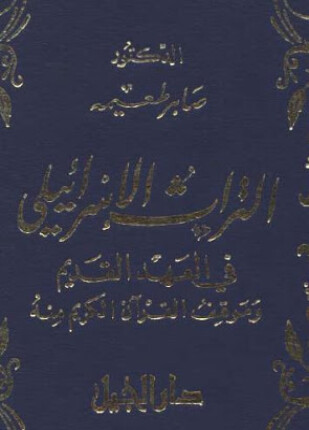 الدكتور
صابر طعيمه
التراث الإسرائيلي
في العهد القديم
وموقف القرآن الكريم منه
دار الجيل